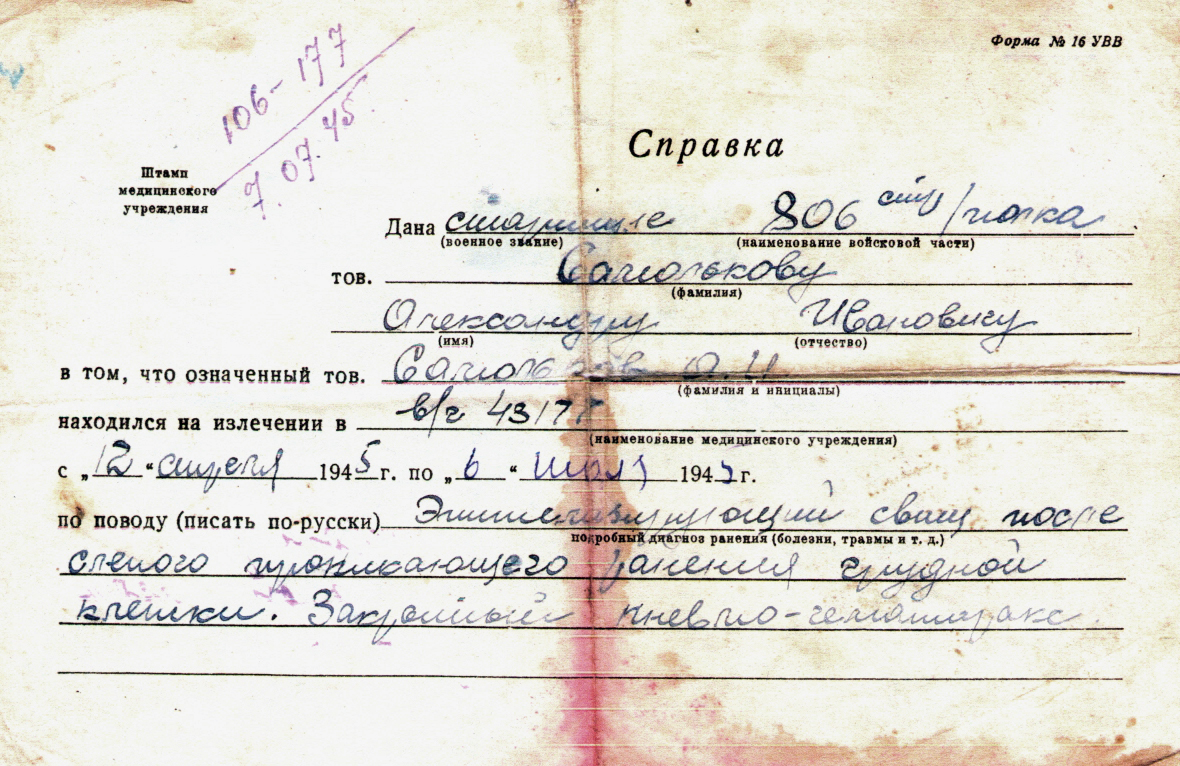 Форма № 16 УВВ
106-177
7.07.45.
Справка
Штамп
медицинского
учреждения
Дана старшине 806 стр/полка
(военное звание) (наименование войсковой части)
тов. Самолькову
(фамилия)
Александру Ивановичу
(имя) (отчество)
в том, что означенный тов. Самольков А.И.
(фамилия и инициалы)
находился на излечении в в/г 4317
(наименование медицинского учреждения)
с „12“ апреля 1945 г. по „6“ июля 1945 г.
по поводу (писать по-русски) свищ после
подробный диагноз ранения (болезни, травмы и т. д.)
слепого проникающего ранения грудной
клетки. Закрытый пневмо-гемоторакс.